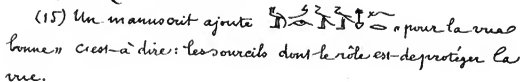 (15) Un manuscrit ajoute „ pour la vue
bonne „ c'est-à dire : les sourcils dont le rôle est de protéger la
vue.